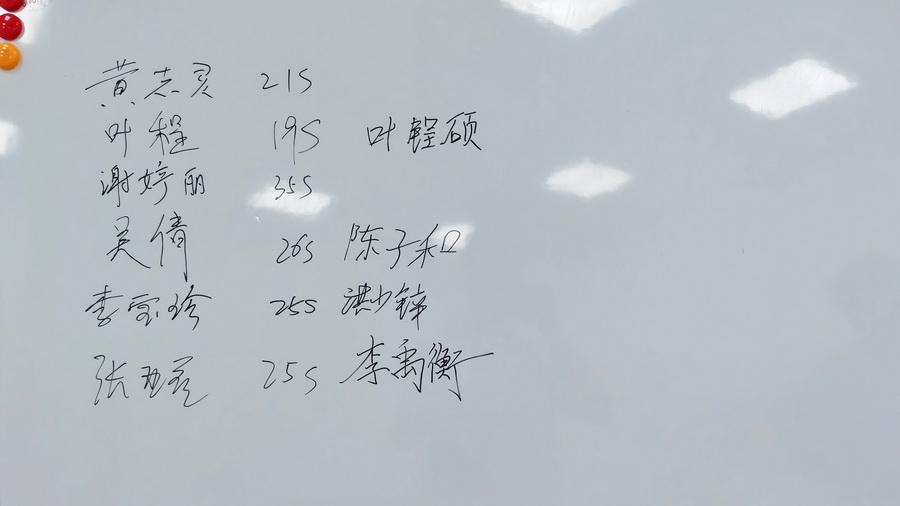 黄志灵 21S
叶程 19S 叶锃硕
谢婷丽 35S
吴倩 26S 陈子和
李宝珍 25S 洪少锌
张 25S 李禹衡